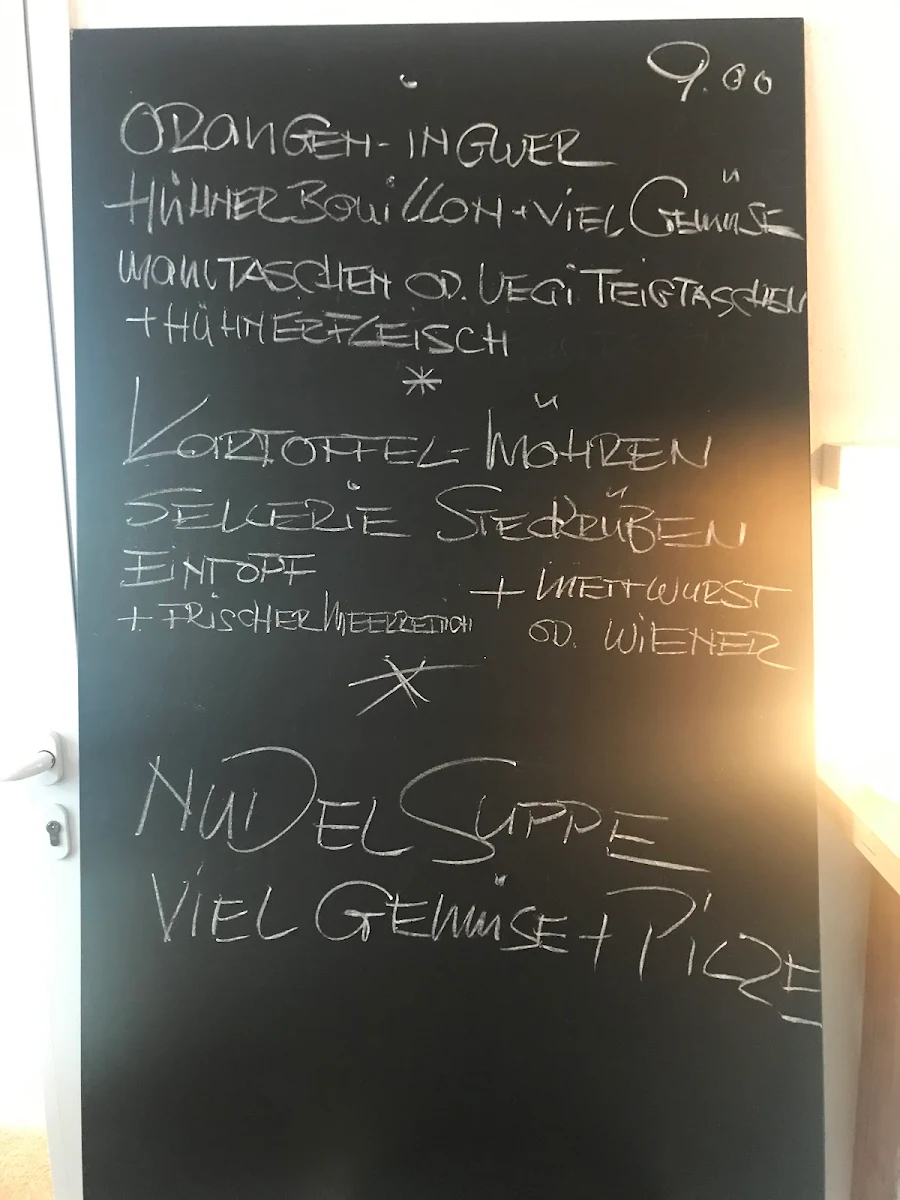 9.00
ORANGEN-INGWER
HÜHNERBOUILLON + VIEL GEMÜSE
MAULTASCHEN OD. VEGI TEIGTASCHEN
+ HÜHNERFLEISCH
*
KARTOFFEL-MÖHREN
SELLERIE STECKRÜBEN
EINTOPF
+ METTWURST
+ FRISCHER MEERRETTICH
OD. WIENER
*
NUDELSUPPE
VIEL GEMÜSE + PILZE